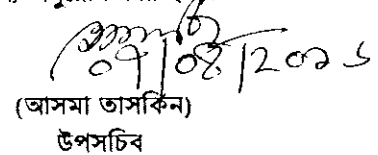 ০৭/০৪/২০১৬
(আসমা তাসকিন)
উপসচিব